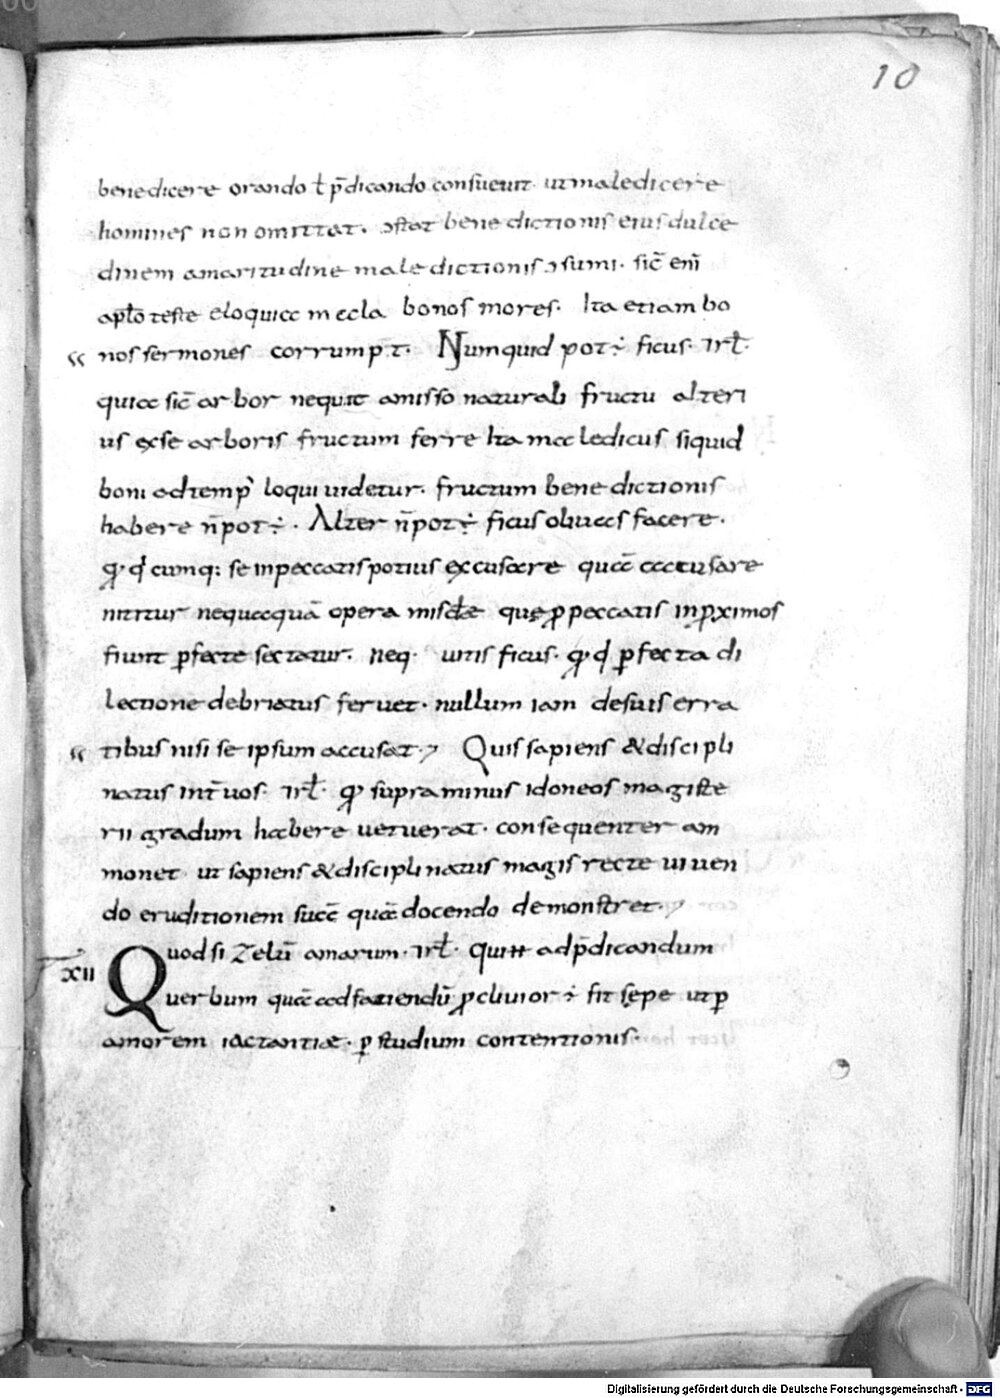 10
benedicere orando ł p̄dicando consueuit. ut maledicere
homines non omittat. ɔstat benedictionis eius dulce
dinem amaritudine maledictionis ɔsumi. sic̄ eni̅
apło teste eloquia mala bonos mores. Ita etiam bo
nos sermones corrump̄t. Numquid pot÷ ficus. rł.
quia sic̄ arbor nequit amisso naturali fructu alteri
us ex se arboris fructum ferre Ita maledicus siquid
boni ad temp' loqui uidetur. fructum benedictionis
habere n̄ pot÷. Alter n̄ pot÷ ficus oliuas facere.
qꝛ qͥcumq: se in peccatis potius excusare quā accusare
nititur nequaquā opera misc̄dæ quę ꝓ peccatis in ꝓximos
fiunt ꝑfecte sectatur. neq. uitis ficus. qꝛ qͥ ꝑfecta di
lectione debriatus feruet. nullum iam de suis erra
tibus nisi se ipsum accusat. Quis sapiens & discipli
natus int̄ uos. rł. qꝛ supra minus idoneos magiste
rii gradum habere uetuerat. consequenter am
monet ut sapiens & disciplinatus magis recte uiuen
do eruditionem suā quā docendo demonstret.
XII Quod si zelū amarum. rł. Quia ad p̄dicandum
uerbum quā ad faciendū ꝓcliuior ÷ fit sępe ut ꝑ
amorem iactantiæ. ꝑ studium contentionis.
Digitalisierung gefördert durch die Deutsche Forschungsgemeinschaft - DFG